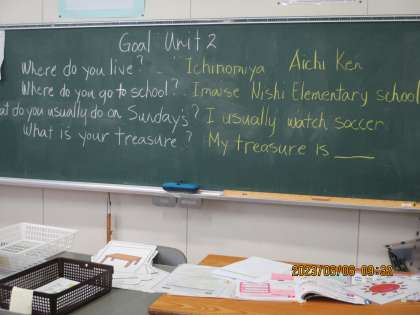 Goal Unit 2
Where do you live? Ichinomiya Aichi Ken
Where do you go to school? Imaise Nishi Elementary school
at do you usually do on Sundays? I usually watch soccer
What is your treasure? My treasure is ____
2023/06/06